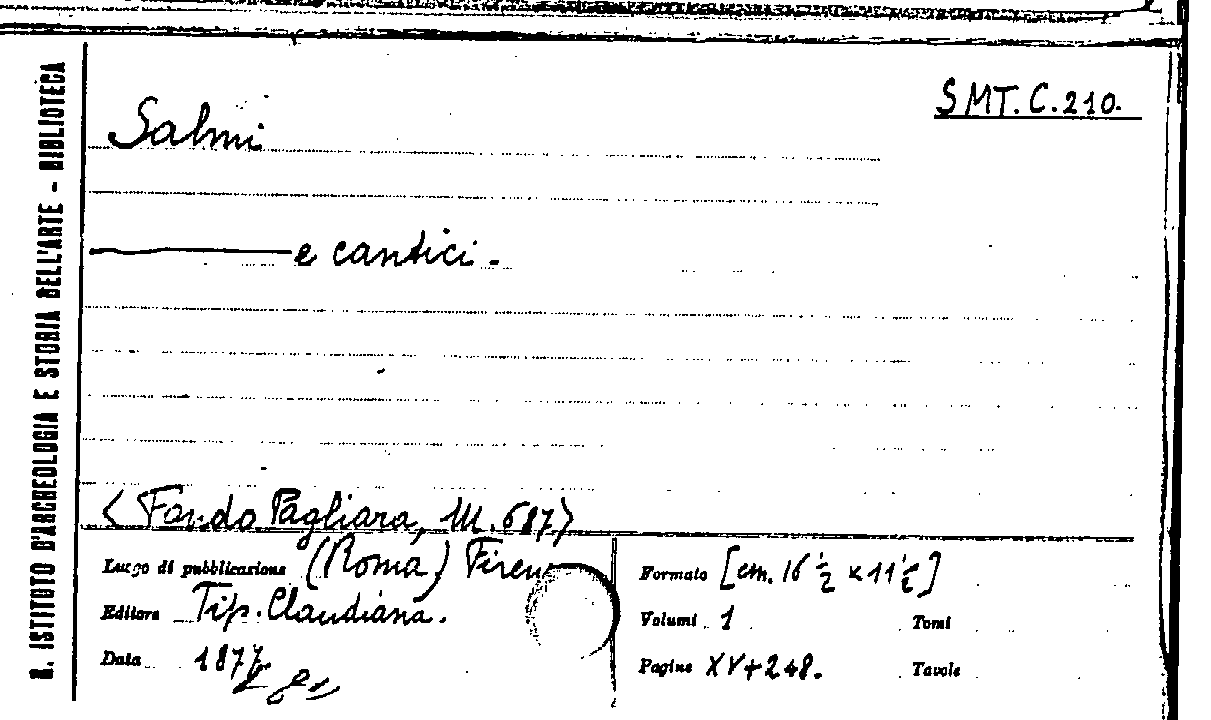 R. ISTITUTO D'ARCHEOLOGIA E STORIA DELL'ARTE - BIBLIOTECA
SMT. C. 210.
Salmi
e cantici.
<Fondo Pagliara, M. 687>
Luogo di pubblicazione (Roma) Firen
Editore Tip. Claudiana.
Data 1877
Formato [cm. 16 ½ x 11 ½]
Volumi 1 Tomi
Pagine XV+248. Tavole